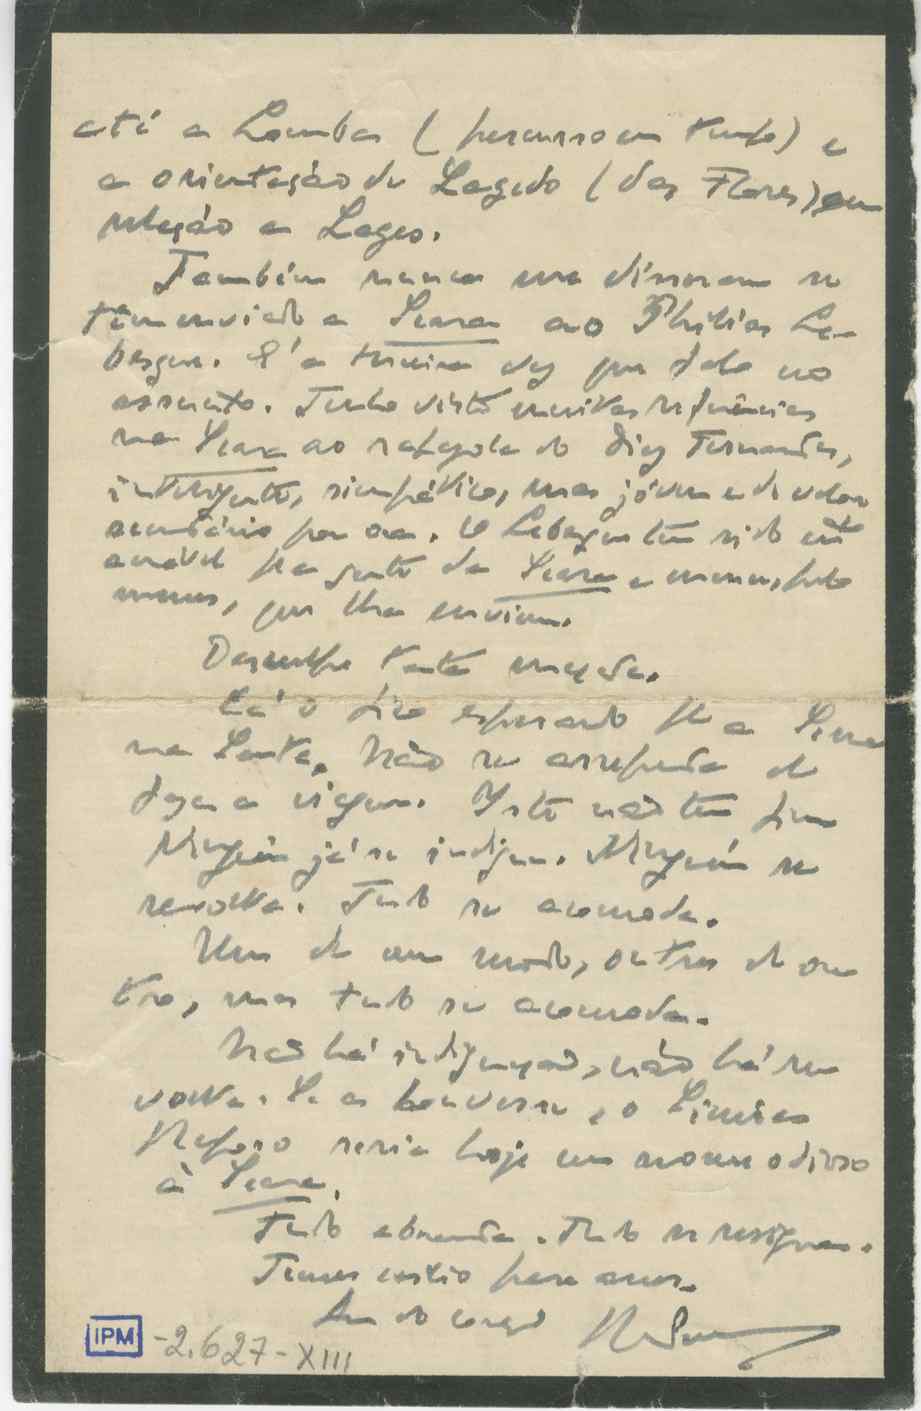 até a Lomba (percurso em tempo) e
a orientação de Lagedo (das Flores) em
relação a Lages.
Também nunca me disseram se
têm enviado a Seara ao Philéas Le-
besgue. É a terceira vez que falo no
assunto. Tenho visto muitas referências
na Seara ao rapazola do Diez Fernandes,
inteligente, simpático, mas jóven e de valor
secundário por ora. O Lebesgue tem sido
amável pra gente da Seara e merece, pelo
menos, que lha enviem.
Desculpe tanta maçada.
Cá o fico esperando pra a
na Não se arrependa de
faça a viagem. Isto não tem fim
Ninguém já se indigna. Ninguém se
revolta. Tudo se acomoda.
Uns de um modo, outros de ou
tro, mas tudo se acomoda.
Não há indignação, não há re
volta. Se as houvesse, o
Raposo seria hoje um nome odioso
à Seara.
Tudo abranda. Tudo se resigna.
Temos para anos.
do coração
IPM -2.627-XIII